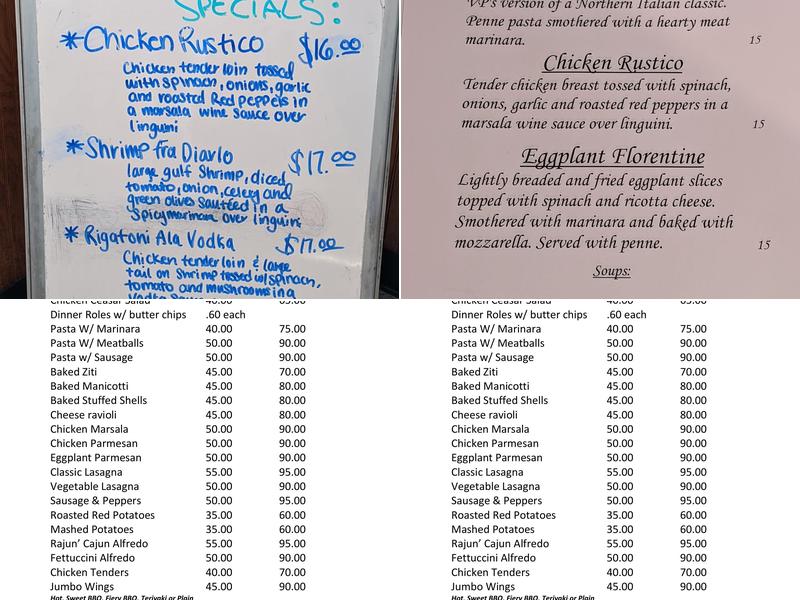 SPECIALS:
*Chicken Rustico $16.00
Chicken tender loin tossed
with spinach, onions, garlic
and roasted Red peppers in
a marsala wine sauce over
linguini
*Shrimp fra Diavlo $17.00
large gulf Shrimp, diced
tomato, onion, celery and
green olives sautéed in a
Spicy marinara over linguini
*Rigatoni Ala Vodka $17.00
Chicken tender loin & large
tail on Shrimp tossed w/spinach,
tomato and mushrooms in a
Vodka Sauce
VP's version of a Northern Italian classic.
Penne pasta smothered with a hearty meat
marinara. 15
Chicken Rustico
Tender chicken breast tossed with spinach,
onions, garlic and roasted red peppers in a
marsala wine sauce over linguini. 15
Eggplant Florentine
Lightly breaded and fried eggplant slices
topped with spinach and ricotta cheese.
Smothered with marinara and baked with
mozzarella. Served with penne. 15
Soups:
Chicken Ceasar Salad 40.00 65.00
Dinner Roles w/ butter chips .60 each
Pasta W/ Marinara 40.00 75.00
Pasta W/ Meatballs 50.00 90.00
Pasta w/ Sausage 50.00 90.00
Baked Ziti 45.00 70.00
Baked Manicotti 45.00 80.00
Baked Stuffed Shells 45.00 80.00
Cheese ravioli 45.00 80.00
Chicken Marsala 50.00 90.00
Chicken Parmesan 50.00 90.00
Eggplant Parmesan 50.00 90.00
Classic Lasagna 55.00 95.00
Vegetable Lasagna 50.00 90.00
Sausage & Peppers 50.00 95.00
Roasted Red Potatoes 35.00 60.00
Mashed Potatoes 35.00 60.00
Rajun' Cajun Alfredo 55.00 95.00
Fettuccini Alfredo 50.00 90.00
Chicken Tenders 40.00 70.00
Jumbo Wings 45.00 90.00
Hot, Sweet BBQ, Fiery BBQ, Teriyaki or Plain
Chicken Ceasar Salad 40.00 65.00
Dinner Roles w/ butter chips .60 each
Pasta W/ Marinara 40.00 75.00
Pasta W/ Meatballs 50.00 90.00
Pasta w/ Sausage 50.00 90.00
Baked Ziti 45.00 70.00
Baked Manicotti 45.00 80.00
Baked Stuffed Shells 45.00 80.00
Cheese ravioli 45.00 80.00
Chicken Marsala 50.00 90.00
Chicken Parmesan 50.00 90.00
Eggplant Parmesan 50.00 90.00
Classic Lasagna 55.00 95.00
Vegetable Lasagna 50.00 90.00
Sausage & Peppers 50.00 95.00
Roasted Red Potatoes 35.00 60.00
Mashed Potatoes 35.00 60.00
Rajun' Cajun Alfredo 55.00 95.00
Fettuccini Alfredo 50.00 90.00
Chicken Tenders 40.00 70.00
Jumbo Wings 45.00 90.00
Hot, Sweet BBQ, Fiery BBQ, Teriyaki or Plain